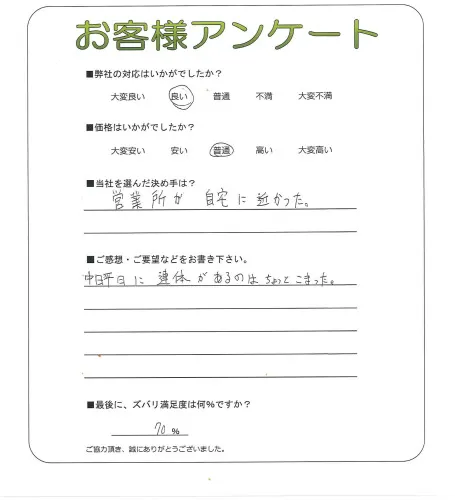 お客様アンケート
■弊社の対応はいかがでしたか？
大変良い 良い 普通 不満 大変不満
■価格はいかがでしたか？
大変安い 安い 普通 高い 大変高い
■当社を選んだ決め手は？
営業所が 自宅に近かった。
■ご感想・ご要望などをお書き下さい。
平日に 連休があるのは ちょっと こまった。
■最後に、ズバリ満足度は何％ですか？
70 %
ご協力頂き、誠にありがとうございました。